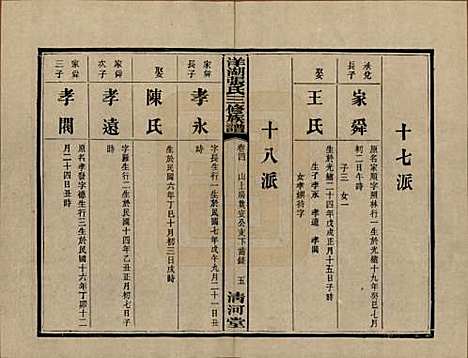 十七派
承兌長子
家舜
原名家順字炳林行一生於光緒十九年癸巳七月
初二日午時
子三女一
娶
王氏
生於光緒二十四年戊戌正月十五日子時
生子孝永 孝遠 孝閣
女孝嫻待字
十八派
洋湖張氏三修族譜
卷四
五
清河堂
家舜長子
孝永
字長生行一生於民國十一年壬戌九月二十一日
時
娶
陳氏
生於民國六年丁巳十月初三日戌時
家舜次子
孝遠
字羅生行二生於民國十四年乙丑正月初七日
時
家舜三子
孝閣
原名孝發字德生行三生於民國十六年丁卯十二
月二十四日丑時